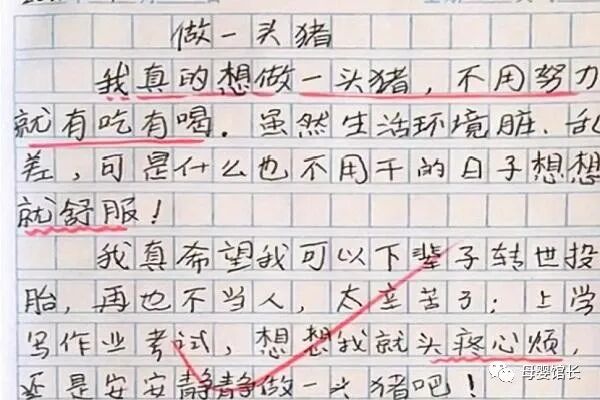 做一头猪
我真的想做一头猪，不用努力
就有吃有喝．虽然生活环境脏、乱
差，可是什么也不用干的日子想想
就舒服！
我真希望我可以下辈子转世投
胎，再也不当人，太辛苦了；上学
写作业考试，想想我就头疼心烦，
还是安安静静做一头猪吧！
母婴馆长